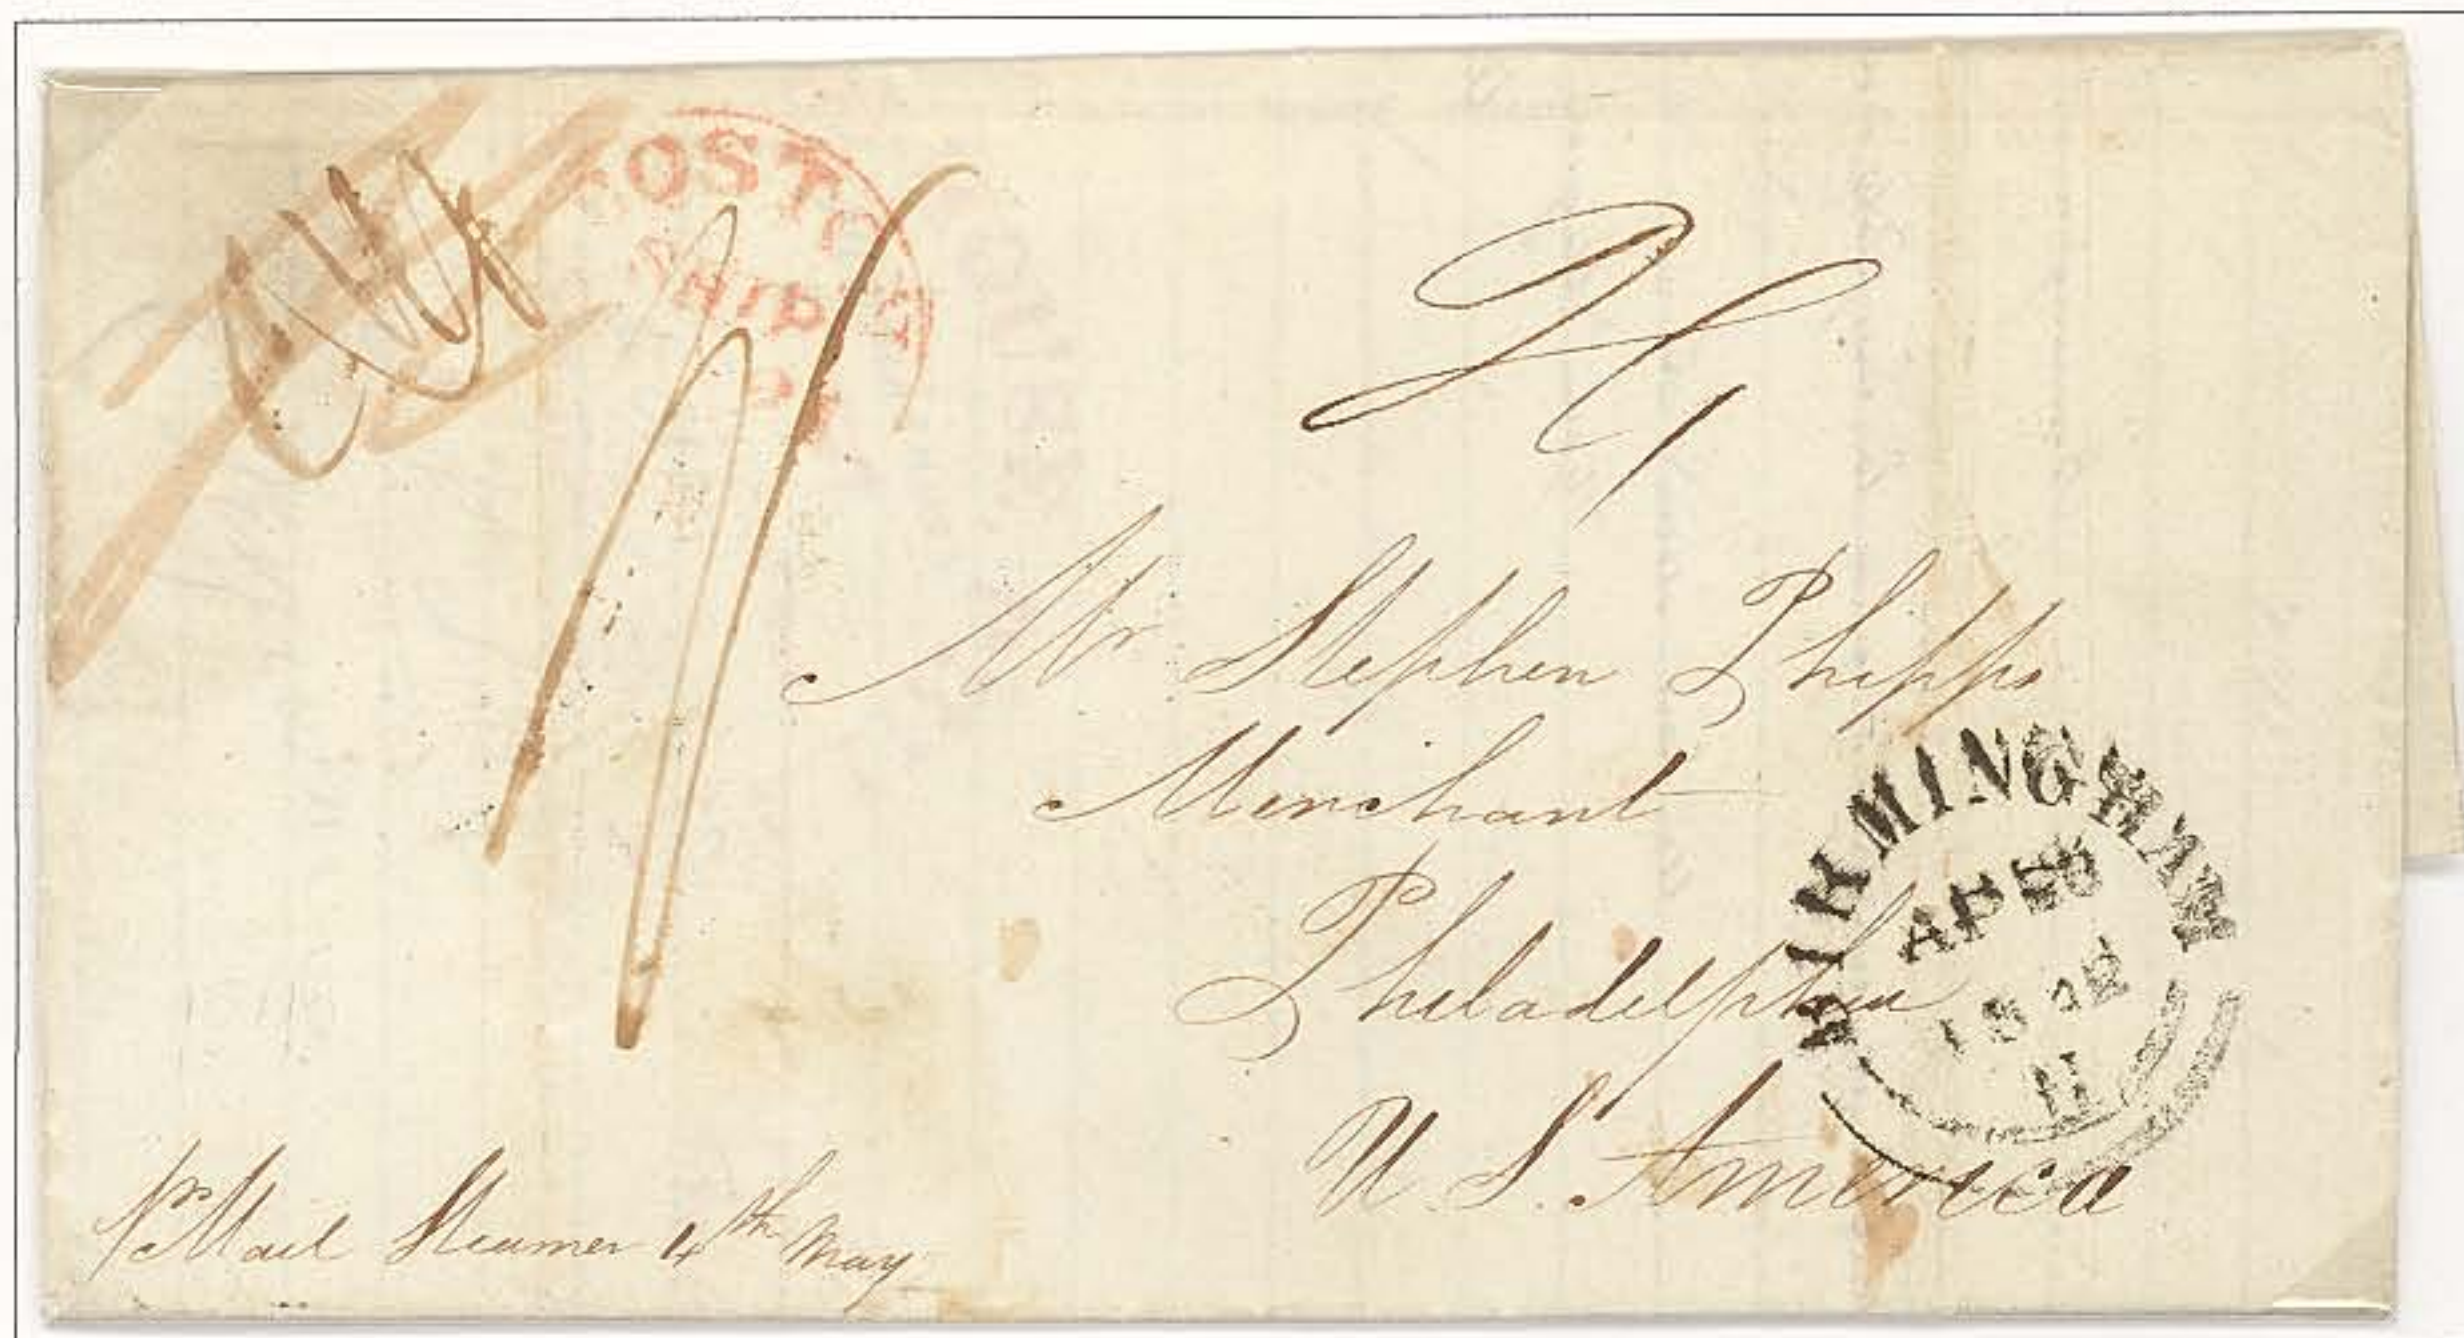 BOSTON
SHIP
Mr Stephen Phipps
Merchant
Philadelphia
U. S. America
BIRMINGHAM
AP
pr Mail Steamer 4th May